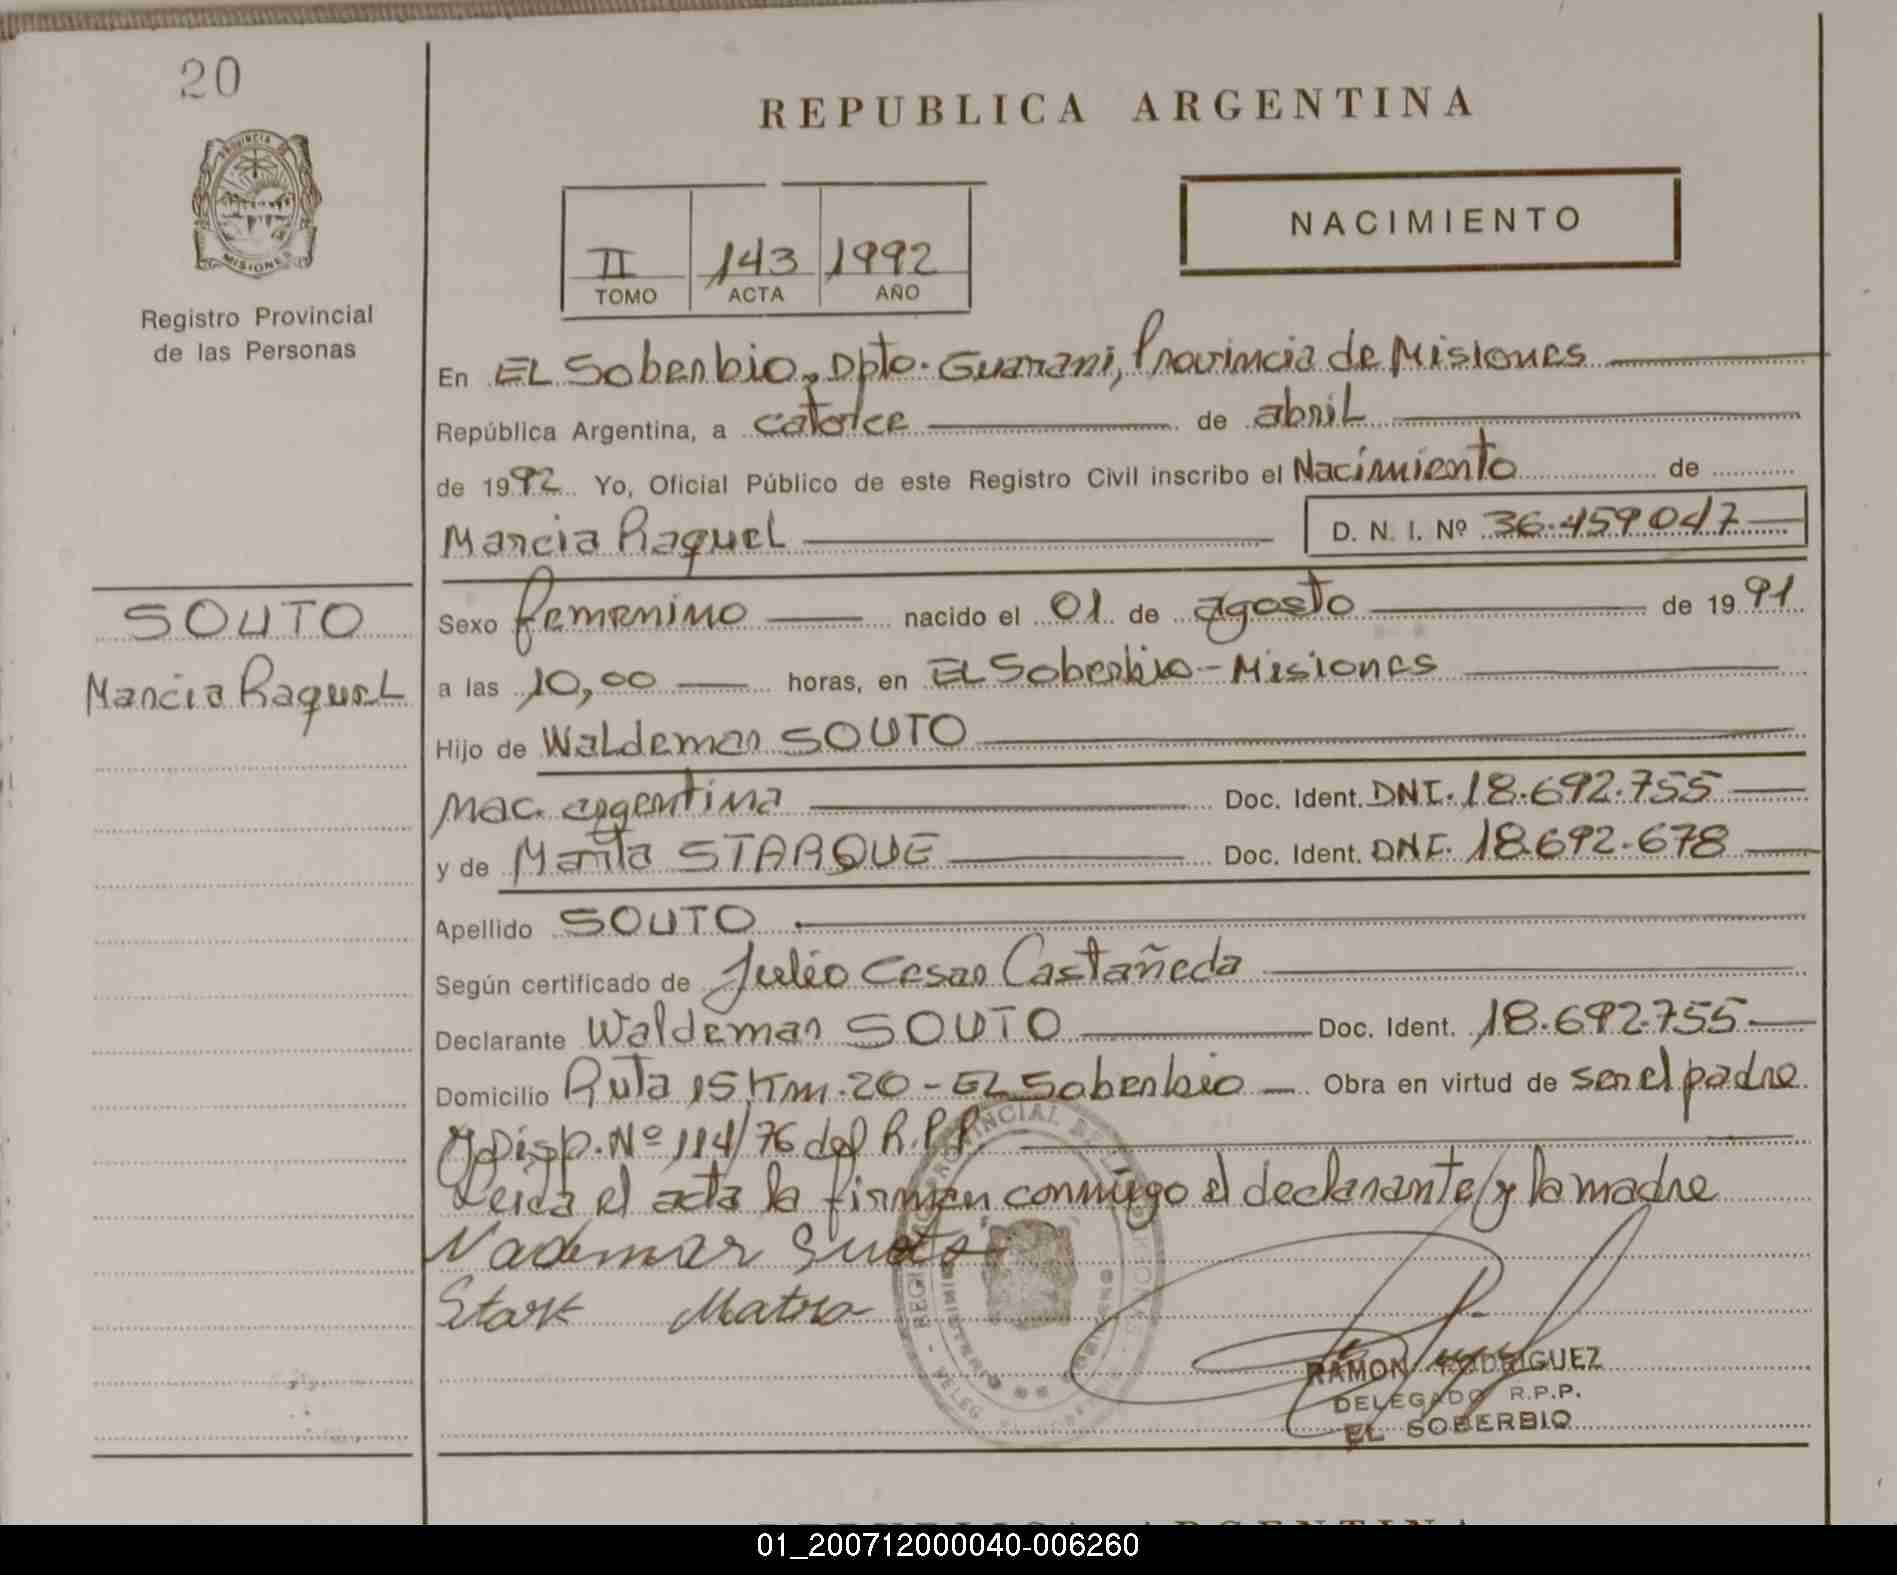 20
PROVINCIA DE
MISIONES
Registro Provincial
de las Personas
SOUTO
Marcia Raquel
REPUBLICA ARGENTINA
NACIMIENTO
II 143 1992
TOMO ACTA AÑO
En EL Soberbio, Dpto. Guarani, Provincia de Misiones
República Argentina, a catorce de abril
de 1992. Yo, Oficial Público de este Registro Civil inscribo el Nacimiento de
Marcia Raquel D. N. I. Nº 36.459047
Sexo femenino nacido el 01 de agosto de 1991
a las 10,00 horas, en EL Soberbio - Misiones
Hijo de Waldemar SOUTO
nac. argentina Doc. Ident. DNI. 18.692.755
y de Marita STARQUE Doc. Ident. DNI. 18692.678
Apellido SOUTO
Según certificado de Julio Cesar Castañeda
Declarante Waldemar SOUTO Doc. Ident. 18.692.755
Domicilio Ruta 15 Km. 20 - EL Soberbio Obra en virtud de ser el padre
y Disp. Nº 114/76 del R.P.P.
Leida el acta la firman conmigo el declarante/y la madre
Stark
RAMON RODRIGUEZ
DELEGADO R.P.P.
EL SOBERBIO
01_200712000040-006260